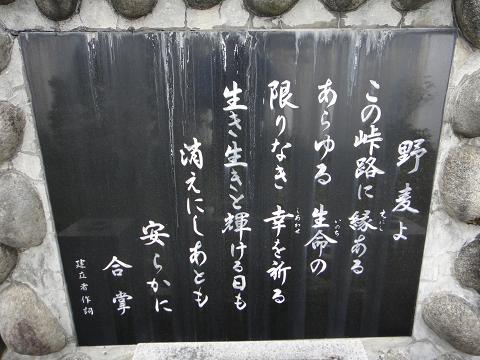 野麦よ
この峠路に縁ある
えにし
あらゆる 生命の
いのち
限りなき 幸を祈る
しあわせ
生き生きと輝ける日も
消えにしあとも
安らかに
合掌
建立者作詞